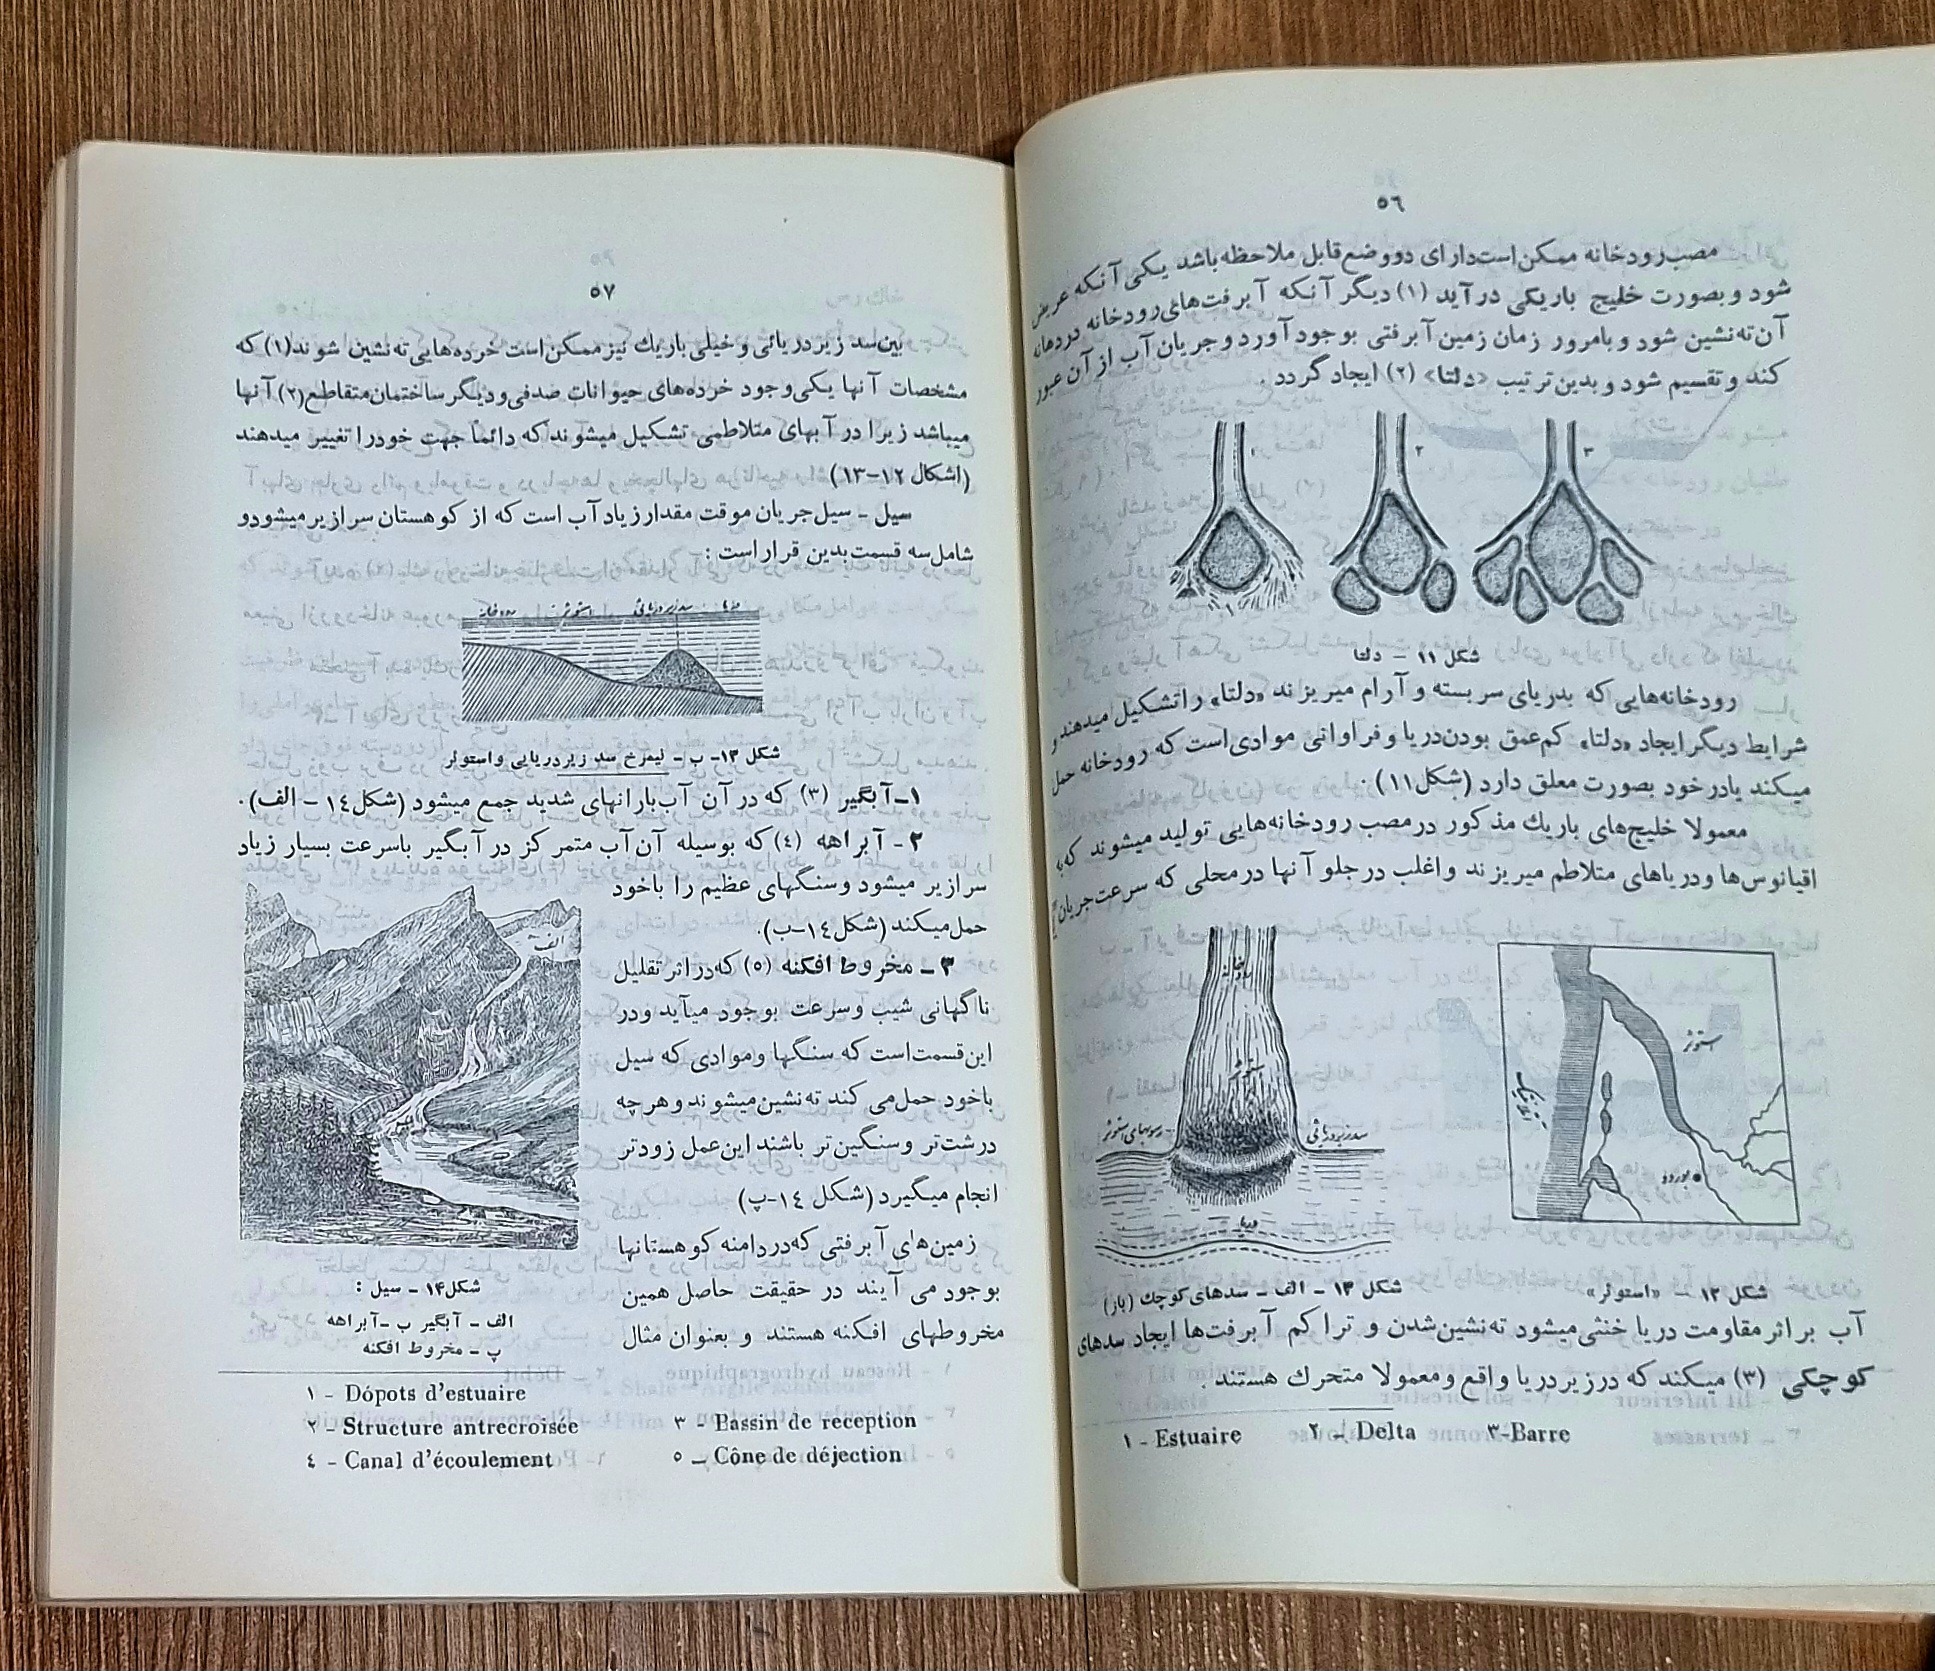 ٥٦
مصب رودخانه ممکن است دارای دو وضع قابل ملاحظه باشد یکی آنکه عریض
شود و بصورت خلیج باریکی در آید (۱) دیگر آنکه آبرفت‌های رودخانه در دهانه
آن ته‌نشین شود و بامرور زمان زمین آبرفتی بوجود آورد و جریان آب از آن عبور
کند و تقسیم شود و بدین ترتیب «دلتا» (۲) ایجاد گردد.
۱
۲
۳
شکل ۱۱ - دلتا
رودخانه‌هایی که بدریای سر بسته و آرام میریزند «دلتا» را تشکیل میدهند و
شرایط دیگر ایجاد «دلتا» کم‌عمق بودن دریا و فراوانی موادی است که رودخانه حمل
میکند یا در خود بصورت معلق دارد (شکل ۱۱).
معمولا خلیج‌های باریك مذکور در مصب رودخانه‌هایی تولید میشوند که به
اقیانوس‌ها و دریاهای متلاطم میریزند و اغلب در جلو آنها در محلی که سرعت جریان
رودخانه
استوئر
رسوبهای استوئر
سد زیر دریائی
دریا
استوئر
بوردو
شکل ۱۲ - «استوئر»
شکل ۱۳ - الف - سدهای کوچك (بار)
آب بر اثر مقاومت دریا خنثی میشود ته‌نشین شدن و تراکم آبرفت‌ها ایجاد سدهای
کوچکی (۳) میکند که در زیر دریا واقع و معمولا متحرك هستند.
۱ - Estuaire ۲ - Delta ۳-Barre
٥٧
بین سد زیر دریائی و خیلی باریك نیز ممکن است خرده‌هایی ته نشین شوند(۱) که
مشخصات آنها یکی وجود خرده‌های حیوانات صدفی و دیگر ساختمان متقاطع(۲) آنها
میباشد زیرا در آبهای متلاطمی تشکیل میشوند که دائماً جهت خود را تغییر میدهند
(اشکال ۱۲-۱۳)
سیل - سیل جریان موقت مقدار زیاد آب است که از کوهستان سرازیر میشود و
شامل سه قسمت بدین قرار است:
دریا سد زیر دریائی استوئر رودخانه
شکل ۱۳- ب - نیمرخ سد زیر دریایی و استوئر
۱- آبگیر (۳) که در آن آب بارانهای شدید جمع میشود (شکل ۱٤ - الف).
۲ - آبراهه (٤) که بوسیله آن آب متمرکز در آبگیر با سرعت بسیار زیاد
سرازیر میشود و سنگهای عظیم را باخود
حمل میکند (شکل ۱٤-ب).
۳ - مخروط افکنه (٥) که در اثر تقلیل
ناگهانی شیب و سرعت بوجود میآید و در
این قسمت است که سنگها و موادی که سیل
باخود حمل می کند ته نشین میشوند و هر چه
درشت‌تر و سنگین تر باشند این عمل زودتر
انجام میگیرد (شکل ۱٤-پ)
زمین‌های آبرفتی که در دامنه کوهستانها
بوجود می آیند در حقیقت حاصل همین
مخروطهای افکنه هستند و بعنوان مثال
الف
شکل ۱۴ - سیل :
الف - آبگیر ب - آبراهه
پ - مخروط افکنه
۱ - Dópots d'estuaire
۲ - Structure antrecroisée ۳ - Bassin de reception
٤ - Canal d'écoulement ٥ - Cône de déjection